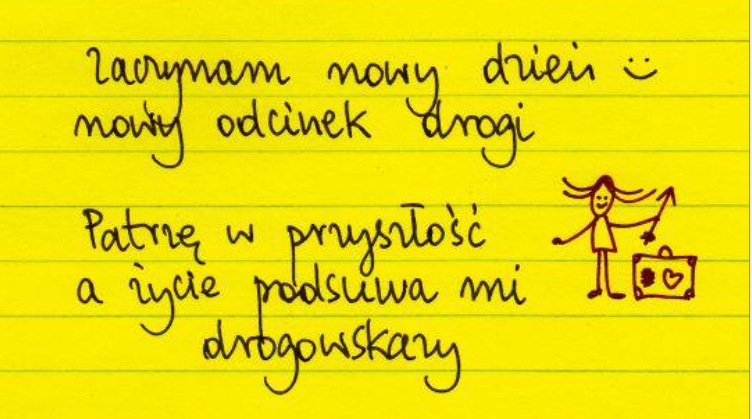 Zaczynam nowy dzień :)
nowy odcinek drogi
Patrzę w przyszłość
a życie podsuwa mi
drogowskazy